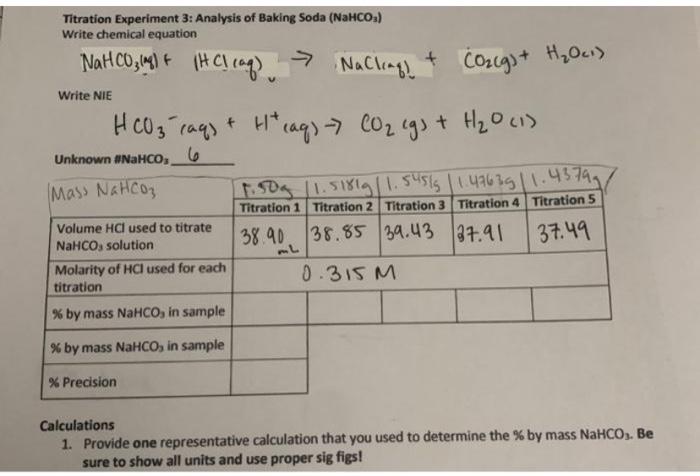 Titration Experiment 3: Analysis of Baking Soda (NaHCO₃)
Write chemical equation
NaHCO₃(aq) + 1HCl(aq) → NaCl(aq) + CO₂(g) + H₂O(l)
Write NIE
HCO₃⁻(aq) + H⁺(aq) → CO₂(g) + H₂O(l)
Unknown #NaHCO₃ 6
Mass NaHCO₃ 1.50g 1.5181g 1.545g 1.4763g 1.4379g
Titration 1 Titration 2 Titration 3 Titration 4 Titration 5
Volume HCl used to titrate
NaHCO₃ solution 38.90 mL 38.85 39.43 37.91 37.49
Molarity of HCl used for each
titration 0.315 M
% by mass NaHCO₃ in sample
% by mass NaHCO₃ in sample
% Precision
Calculations
1. Provide one representative calculation that you used to determine the % by mass NaHCO₃. Be
sure to show all units and use proper sig figs!